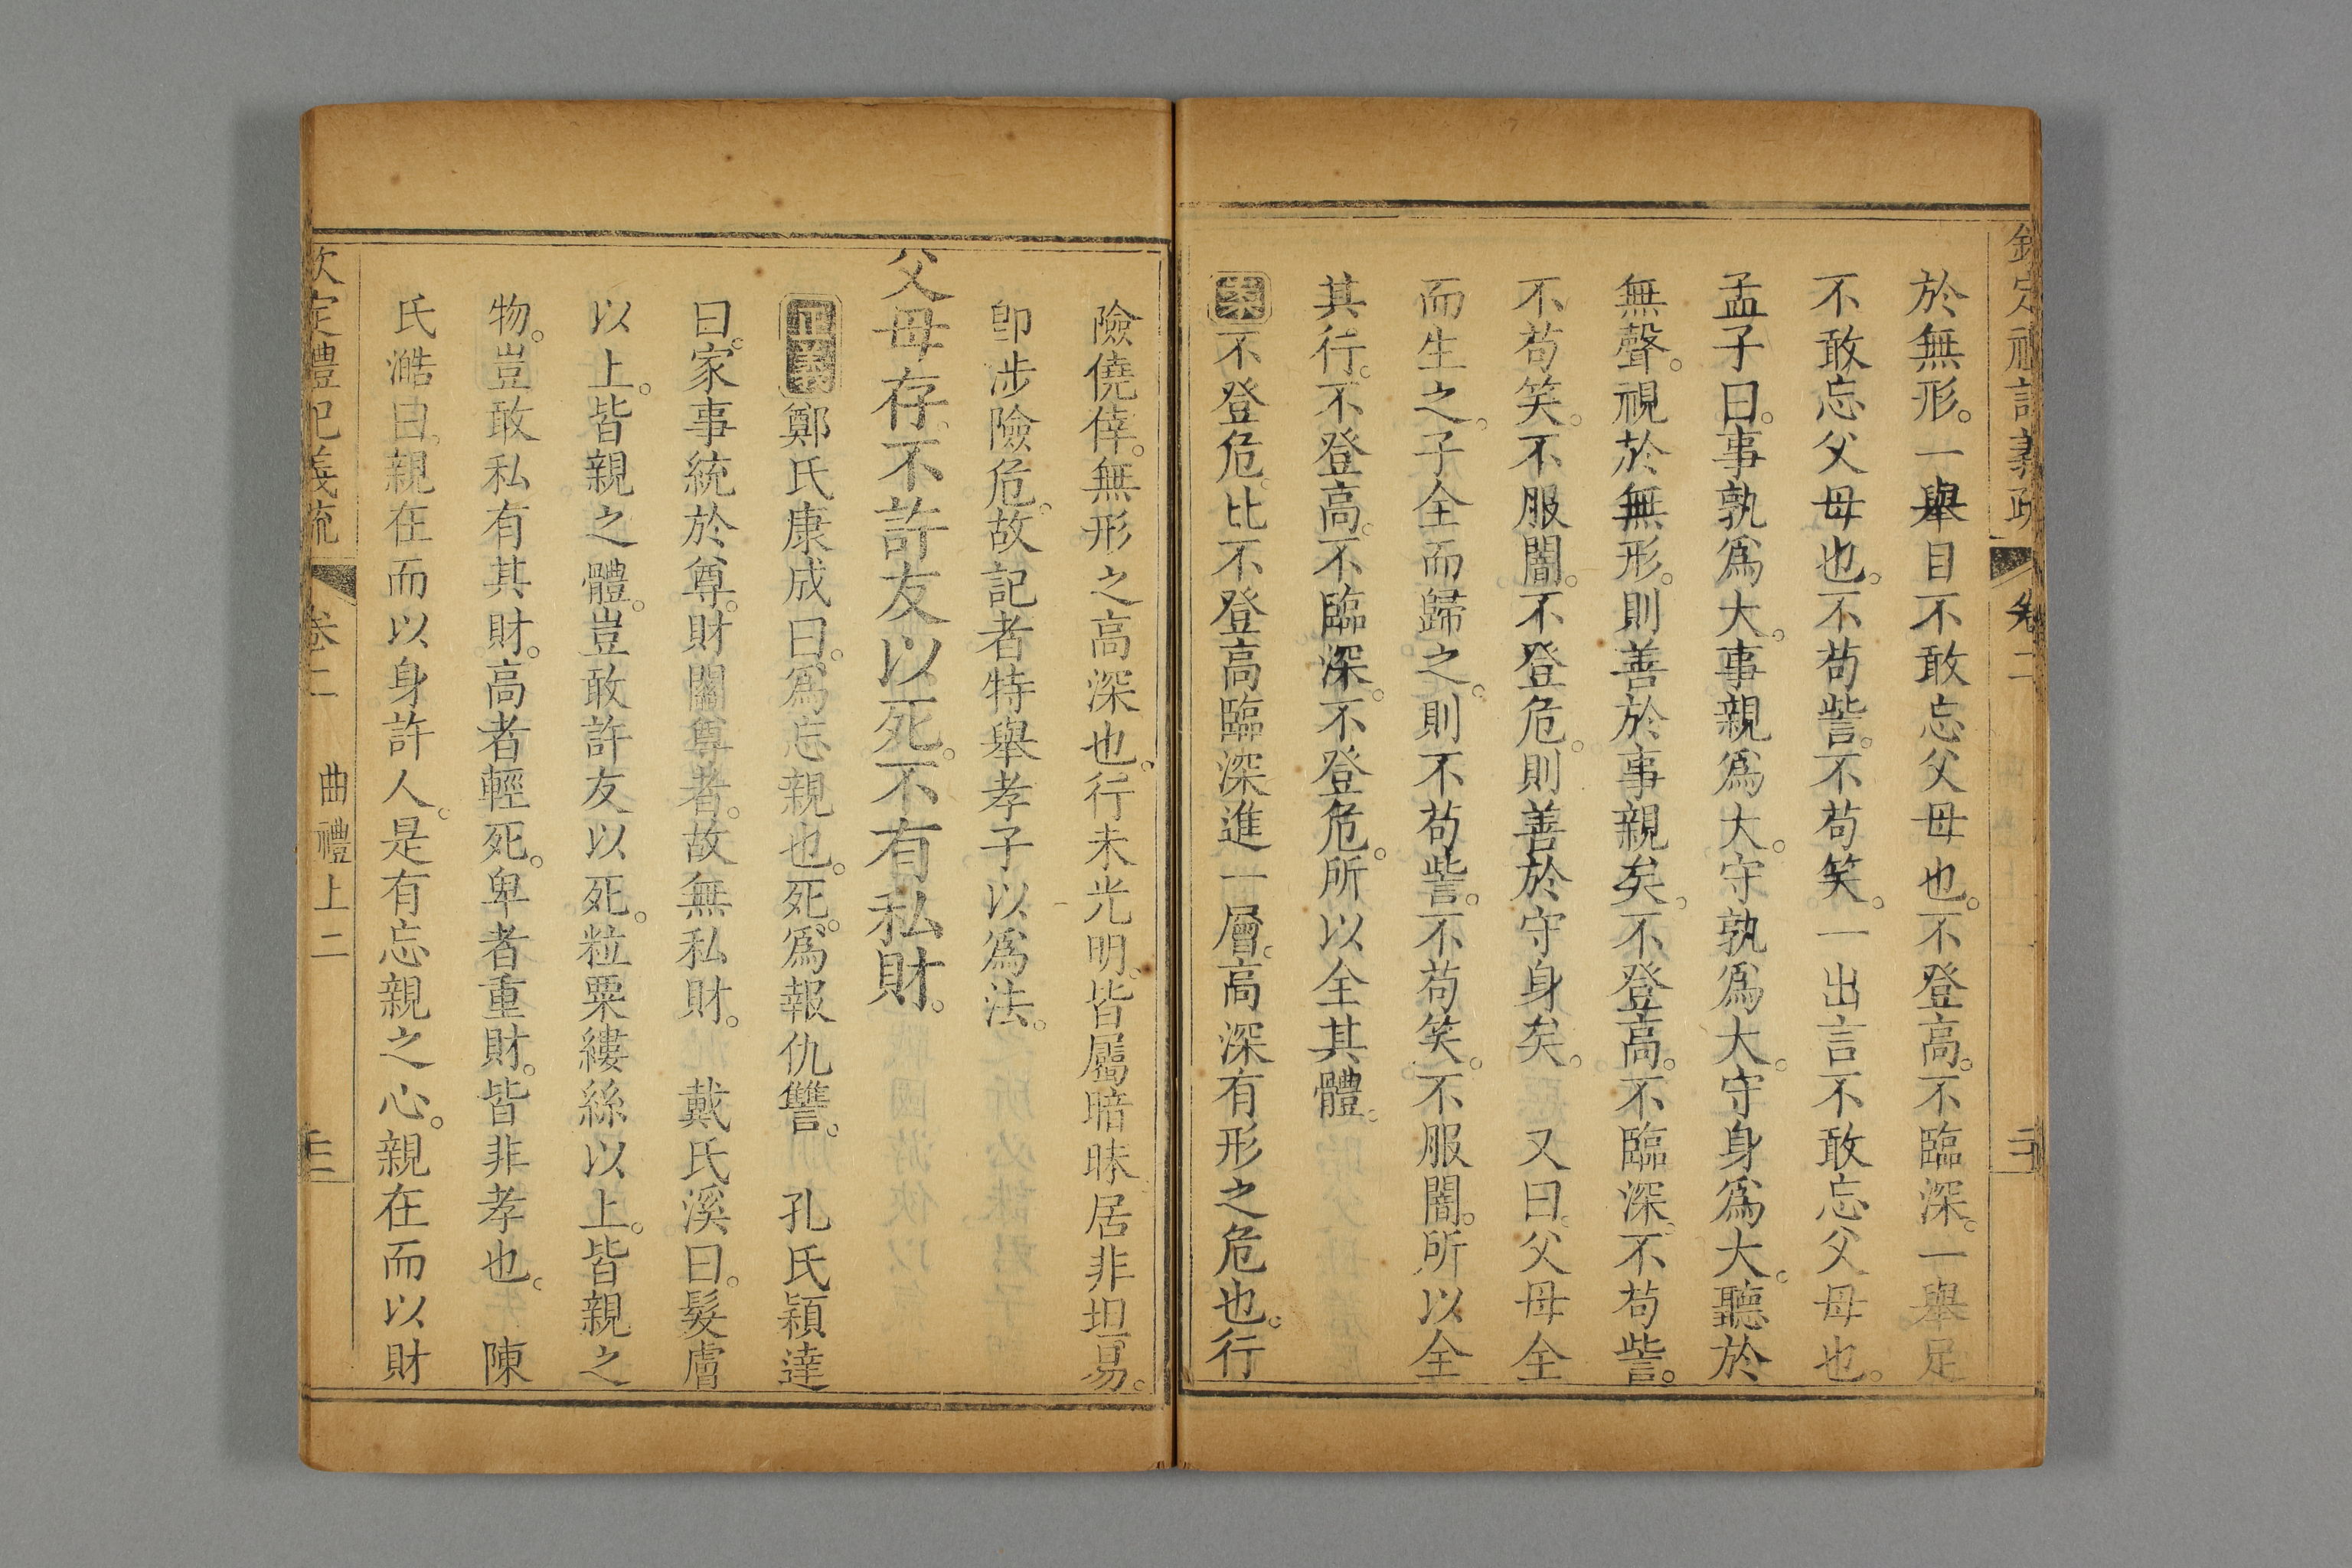 欽定禮記義疏 卷二
於無形。一舉目不敢忘父母也。不登高。不臨深。一舉足
不敢忘父母也。不苟訾。不苟笑。一出言不敢忘父母也。
孟子曰。事孰爲大。事親爲大。守孰爲大。守身爲大。聽於
無聲。視於無形。則善於事親矣。不登高。不臨深。不苟訾。
不苟笑。不服闇。不登危。則善於守身矣。 又曰。父母全
而生之。子全而歸之。則不苟訾。不苟笑。不服闇。所以全
其行。不登高。不臨深。不登危。所以全其體。
案不登危。比不登高臨深進一層。高深有形之危也。行
險僥倖。無形之高深也。行未光明。皆屬暗昧。居非坦易。
卽涉險危。故記者特舉孝子以爲法。
父母存。不許友以死。不有私財。
正義鄭氏康成曰。爲忘親也。死。爲報仇讐。 孔氏穎達
曰。家事統於尊。財關尊者。故無私財。 戴氏溪曰。髮膚
以上。皆親之體。豈敢許友以死。粒粟縷絲以上。皆親之
物。豈敢私有其財。高者輕死。卑者重財。皆非孝也。 陳
氏澔曰。親在而以身許人。是有忘親之心。親在而以財
欽定禮記義疏 卷二 曲禮上二